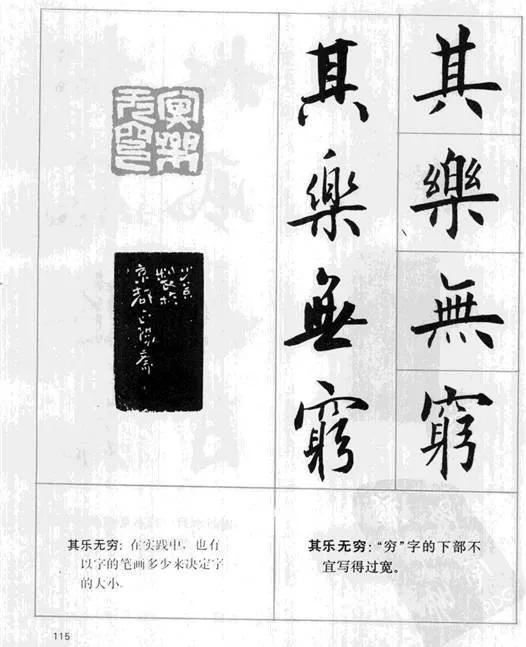 其樂無窮
其樂無窮
製於
京都
其乐无穷：在实践中，也有
以字的笔画多少来决定字
的大小。
其乐无穷：“穷”字的下部不
宜写得过宽。
115